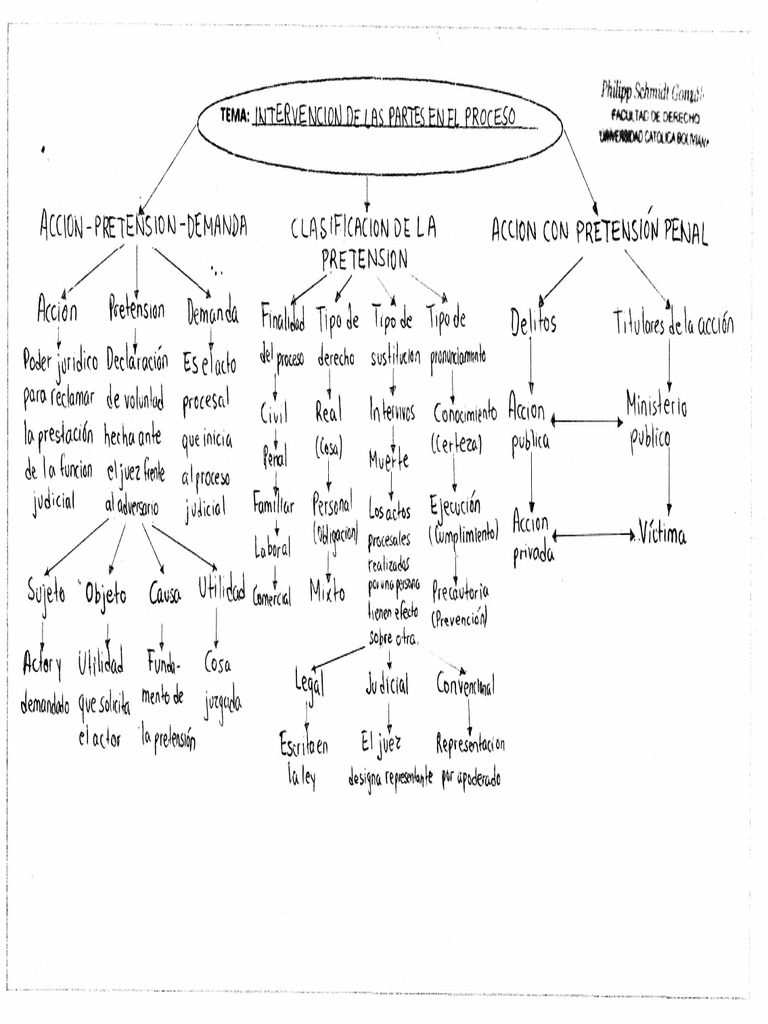 TEMA: INTERVENCION DE LAS PARTES EN EL PROCESO
Philipp Schmidt
FACULTAD DE DERECHO
UNIVERSIDAD CATOLICA BOLIVIANA
ACCION-PRETENSION-DEMANDA
Accion
Poder juridico
para reclamar
la prestación
de la funcion
judicial
Pretension
Declaración
de voluntad
hecha ante
el juez frente
al adversario
Demanda
Es el acto
procesal
que inicia
al proceso
judicial
Sujeto
Actor y
demandado
Objeto
Utilidad
que solicita
el actor
Causa
Funda-
mento de
la pretensión
Utilidad
Cosa
juzgada
CLASIFICACION DE LA
PRETENSION
Finalidad
del proceso
Civil
Penal
Familiar
Laboral
Comercial
Tipo de
derecho
Real
(Cosa)
Personal
(Obligacion)
Mixto
Tipo de
sustitucion
Intervivos
Muerte
Los actos
procesales
realizados
por una persona
tienen efecto
sobre otra.
Legal
Escrita en
la ley
Judicial
El juez
designa representante
Convencional
Representacion
por apoderado
Tipo de
pronunciamiento
Conocimiento
(Certeza)
Ejecución
(Cumplimiento)
Precautoria
(Prevención)
ACCION CON PRETENSIÓN PENAL
Delitos
Accion
publica
Accion
privada
Titulares de la acción
Ministerio
publico
Víctima